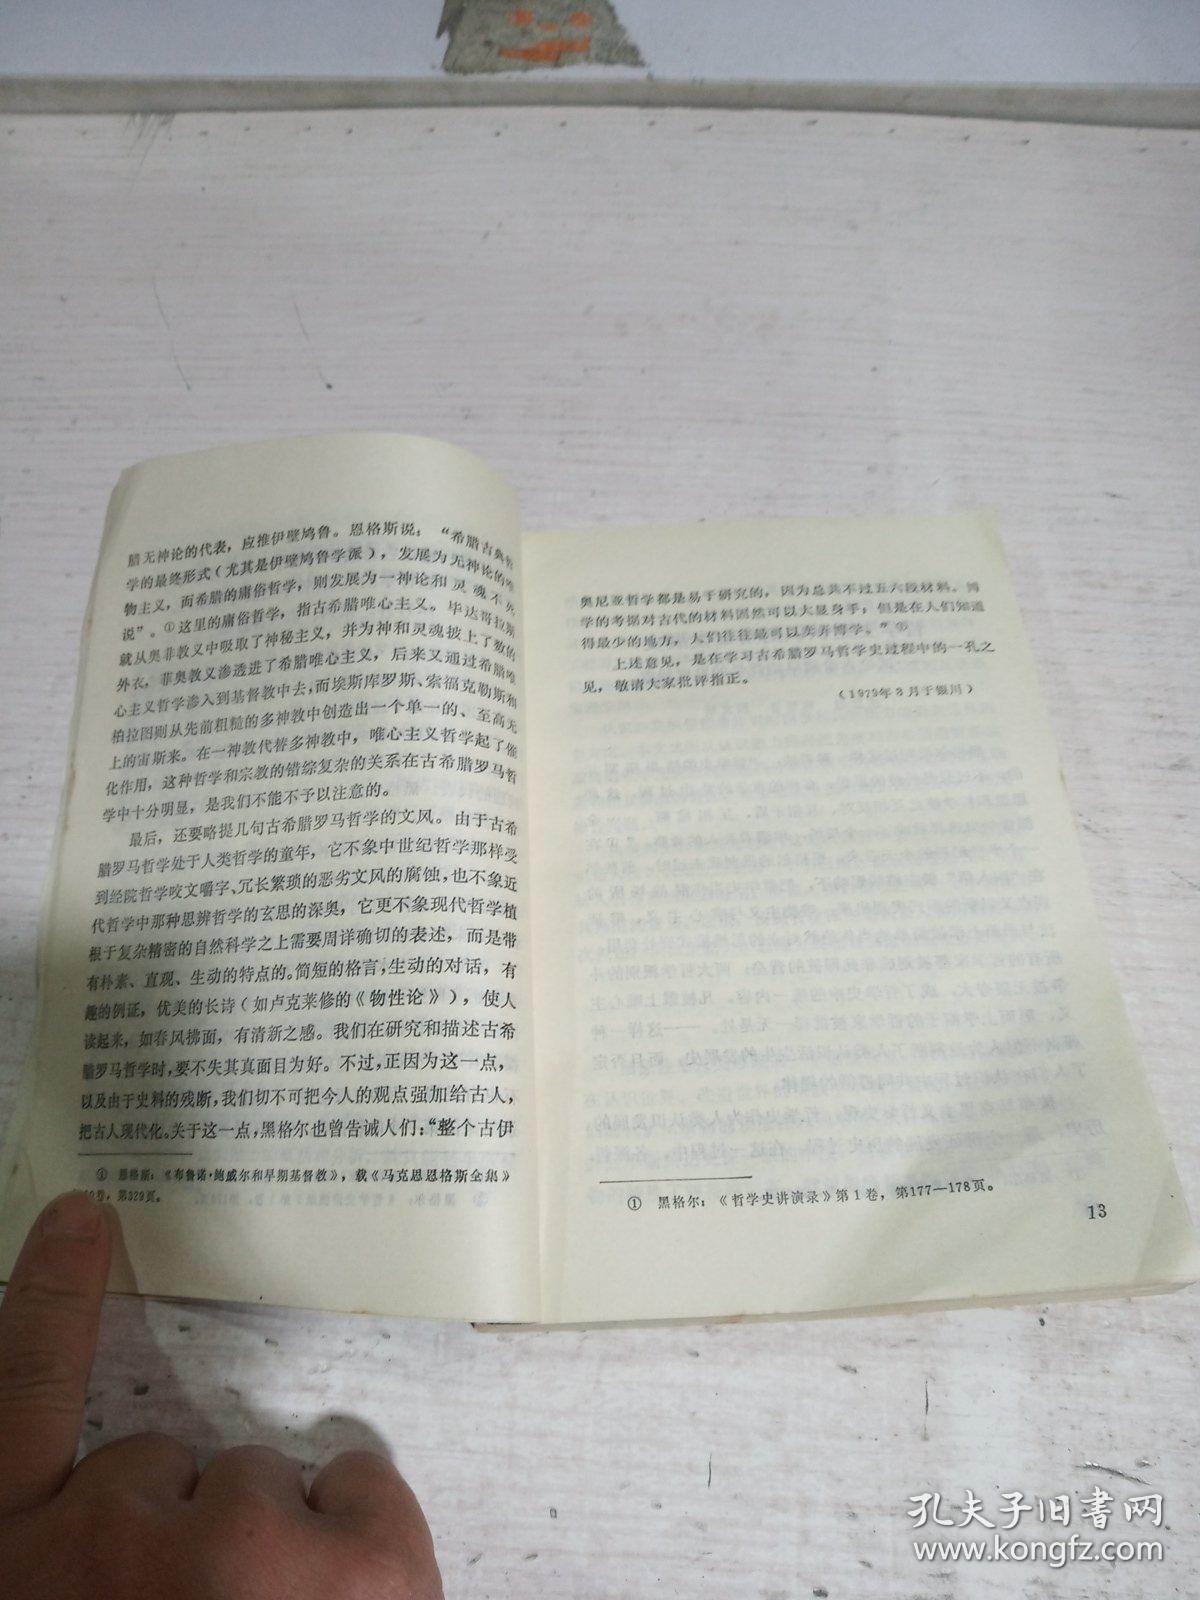 腊无神论的代表，应推伊壁鸠鲁。恩格斯说：“希腊古典哲
学的最终形式（尤其是伊壁鸠鲁学派），发展为无神论的唯
物主义，而希腊的庸俗哲学，则发展为一神论和灵魂不死
说”。①这里的庸俗哲学，指古希腊唯心主义。毕达哥拉斯
就从奥非教义中吸取了神秘主义，并为神和灵魂披上了数的
外衣，菲奥教义渗透进了希腊唯心主义，后来又通过希腊唯
心主义哲学渗入到基督教中去，而埃斯库罗斯、索福克勒斯和
柏拉图则从先前粗糙的多神教中创造出一个单一的、至高无
上的宙斯来。在一神教代替多神教中，唯心主义哲学起了催
化作用，这种哲学和宗教的错综复杂的关系在古希腊罗马哲
学中十分明显，是我们不能不予以注意的。
最后，还要略提几句古希腊罗马哲学的文风。由于古希
腊罗马哲学处于人类哲学的童年，它不象中世纪哲学那样受
到经院哲学咬文嚼字、冗长繁琐的恶劣文风的腐蚀，也不象近
代哲学中那种思辨哲学的玄思的深奥，它更不象现代哲学植
根于复杂精密的自然科学之上需要周详确切的表述，而是带
有朴素、直观、生动的特点的。简短的格言，生动的对话，有
趣的例证，优美的长诗（如卢克莱修的《物性论》），使人
读起来，如春风拂面，有清新之感。我们在研究和描述古希
腊罗马哲学时，要不失其真面目为好。不过，正因为这一点，
以及由于史料的残断，我们切不可把今人的观点强加给古人，
把古人现代化。关于这一点，黑格尔也曾告诫人们：“整个古伊
① 恩格斯：《布鲁诺·鲍威尔和早期基督教》，载《马克思恩格斯全集》
卷，第329页。
奥尼亚哲学都是易于研究的，因为总共不过五六段材料。博
学的考据对古代的材料固然可以大显身手，但是在人们知道
得最少的地方，人们往往最可以卖弄博学。”①
上述意见，是在学习古希腊罗马哲学史过程中的一孔之
见，敬请大家批评指正。
（1979年8月于银川）
① 黑格尔：《哲学史讲演录》第1卷，第177—178页。
13
孔夫子旧书网
www.kongfz.com